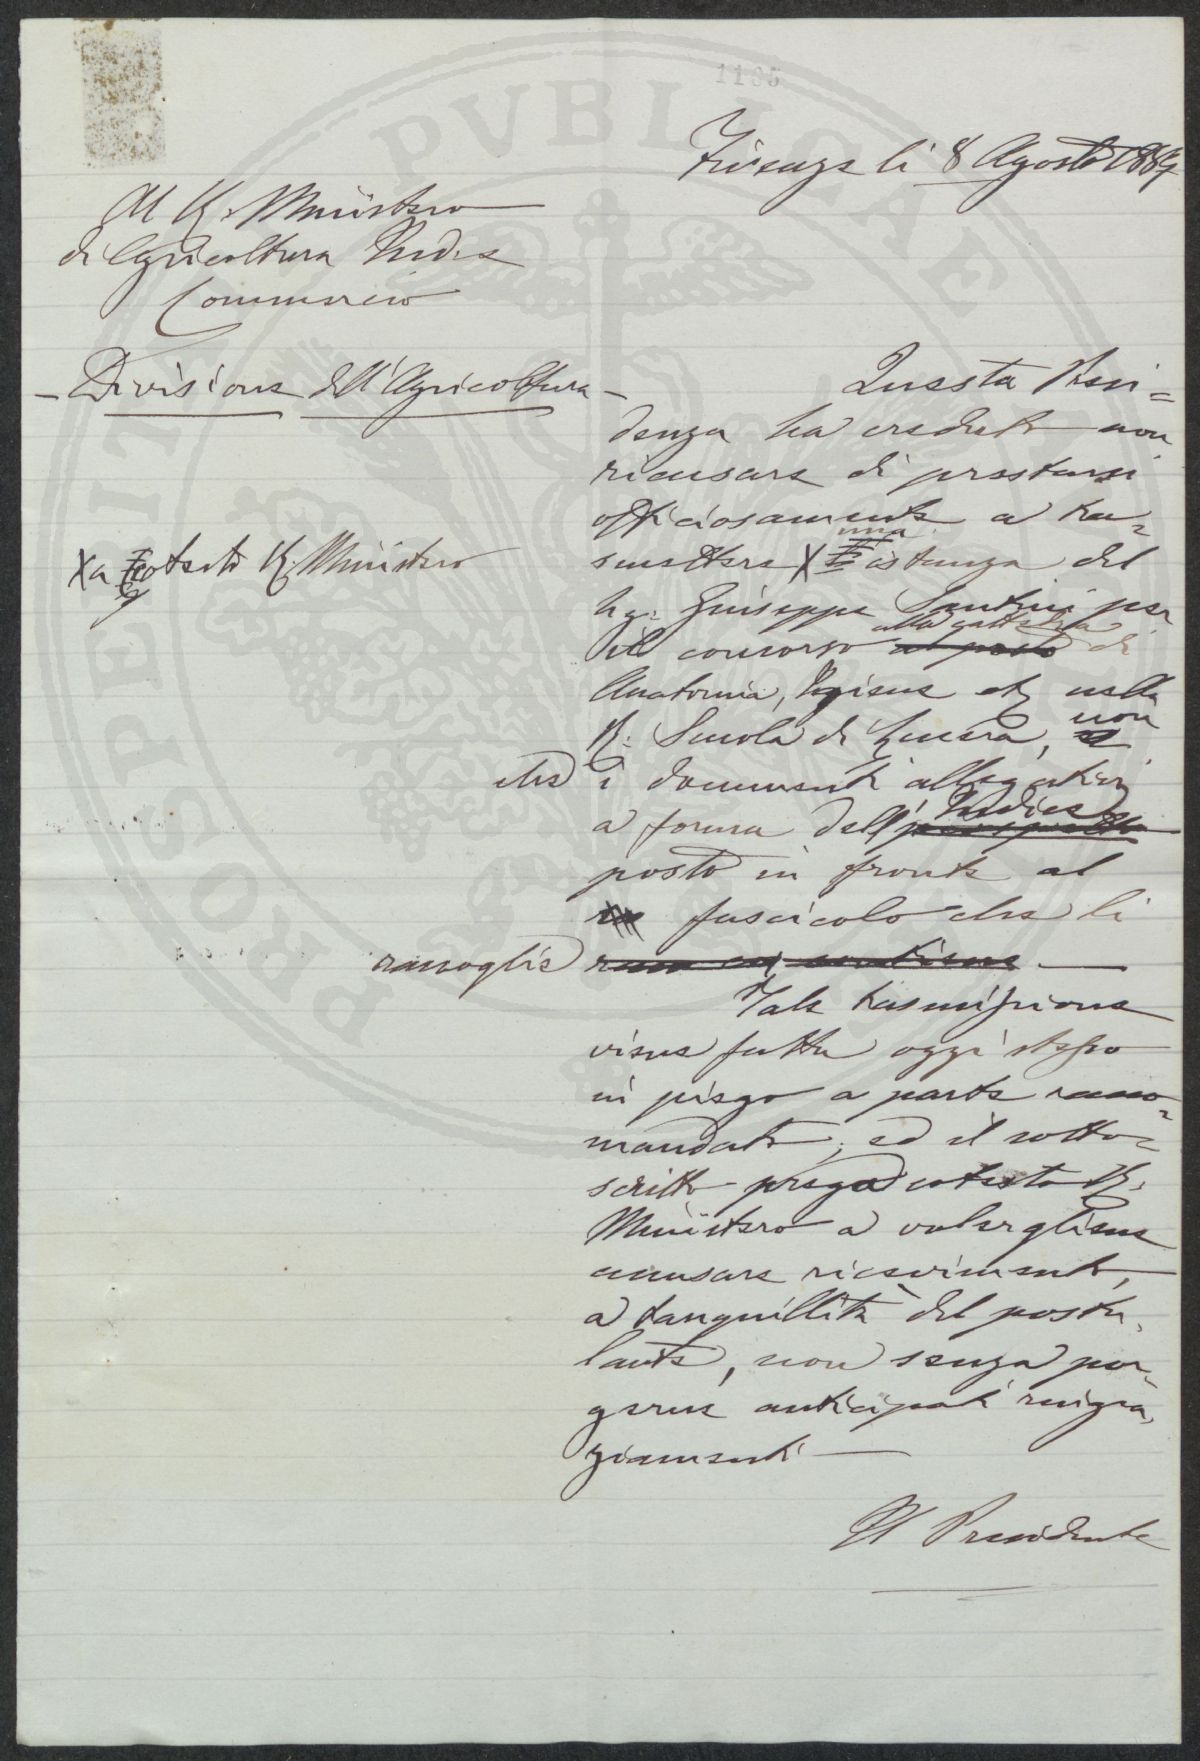 1195
Firenze li 8 Agosto 1884
Al R. Ministero
di Agricoltura Ind. e
Commercio
- Divisione dell'Agricoltura -
Questa Presi=
denza ha creduto non
ricusare di prestarsi
officiosamente a tra=
smettere X una istanza del
Xa cotesto R. Ministero
Sig. Giuseppe Santini per
il concorso al posto alla cattedra di
Anatomia, Igiene etc nella
R. Scuola di Lucera, non
che i documenti allegativi
a forma dell'Indice
posto in fronte al
fascicolo che li
raccoglie
Tale trasmissione
viene fatta oggi stesso
in piego a parte racco=
mandato; ed il sotto=
scritto prega cotesto R.
Ministero a volergliene
accusare ricevimento,
a tranquillità del postu=
lante, non senza por=
gerne anticipati ringra=
ziamenti
Il Presidente
PUBLICAE
PROSPERITATI